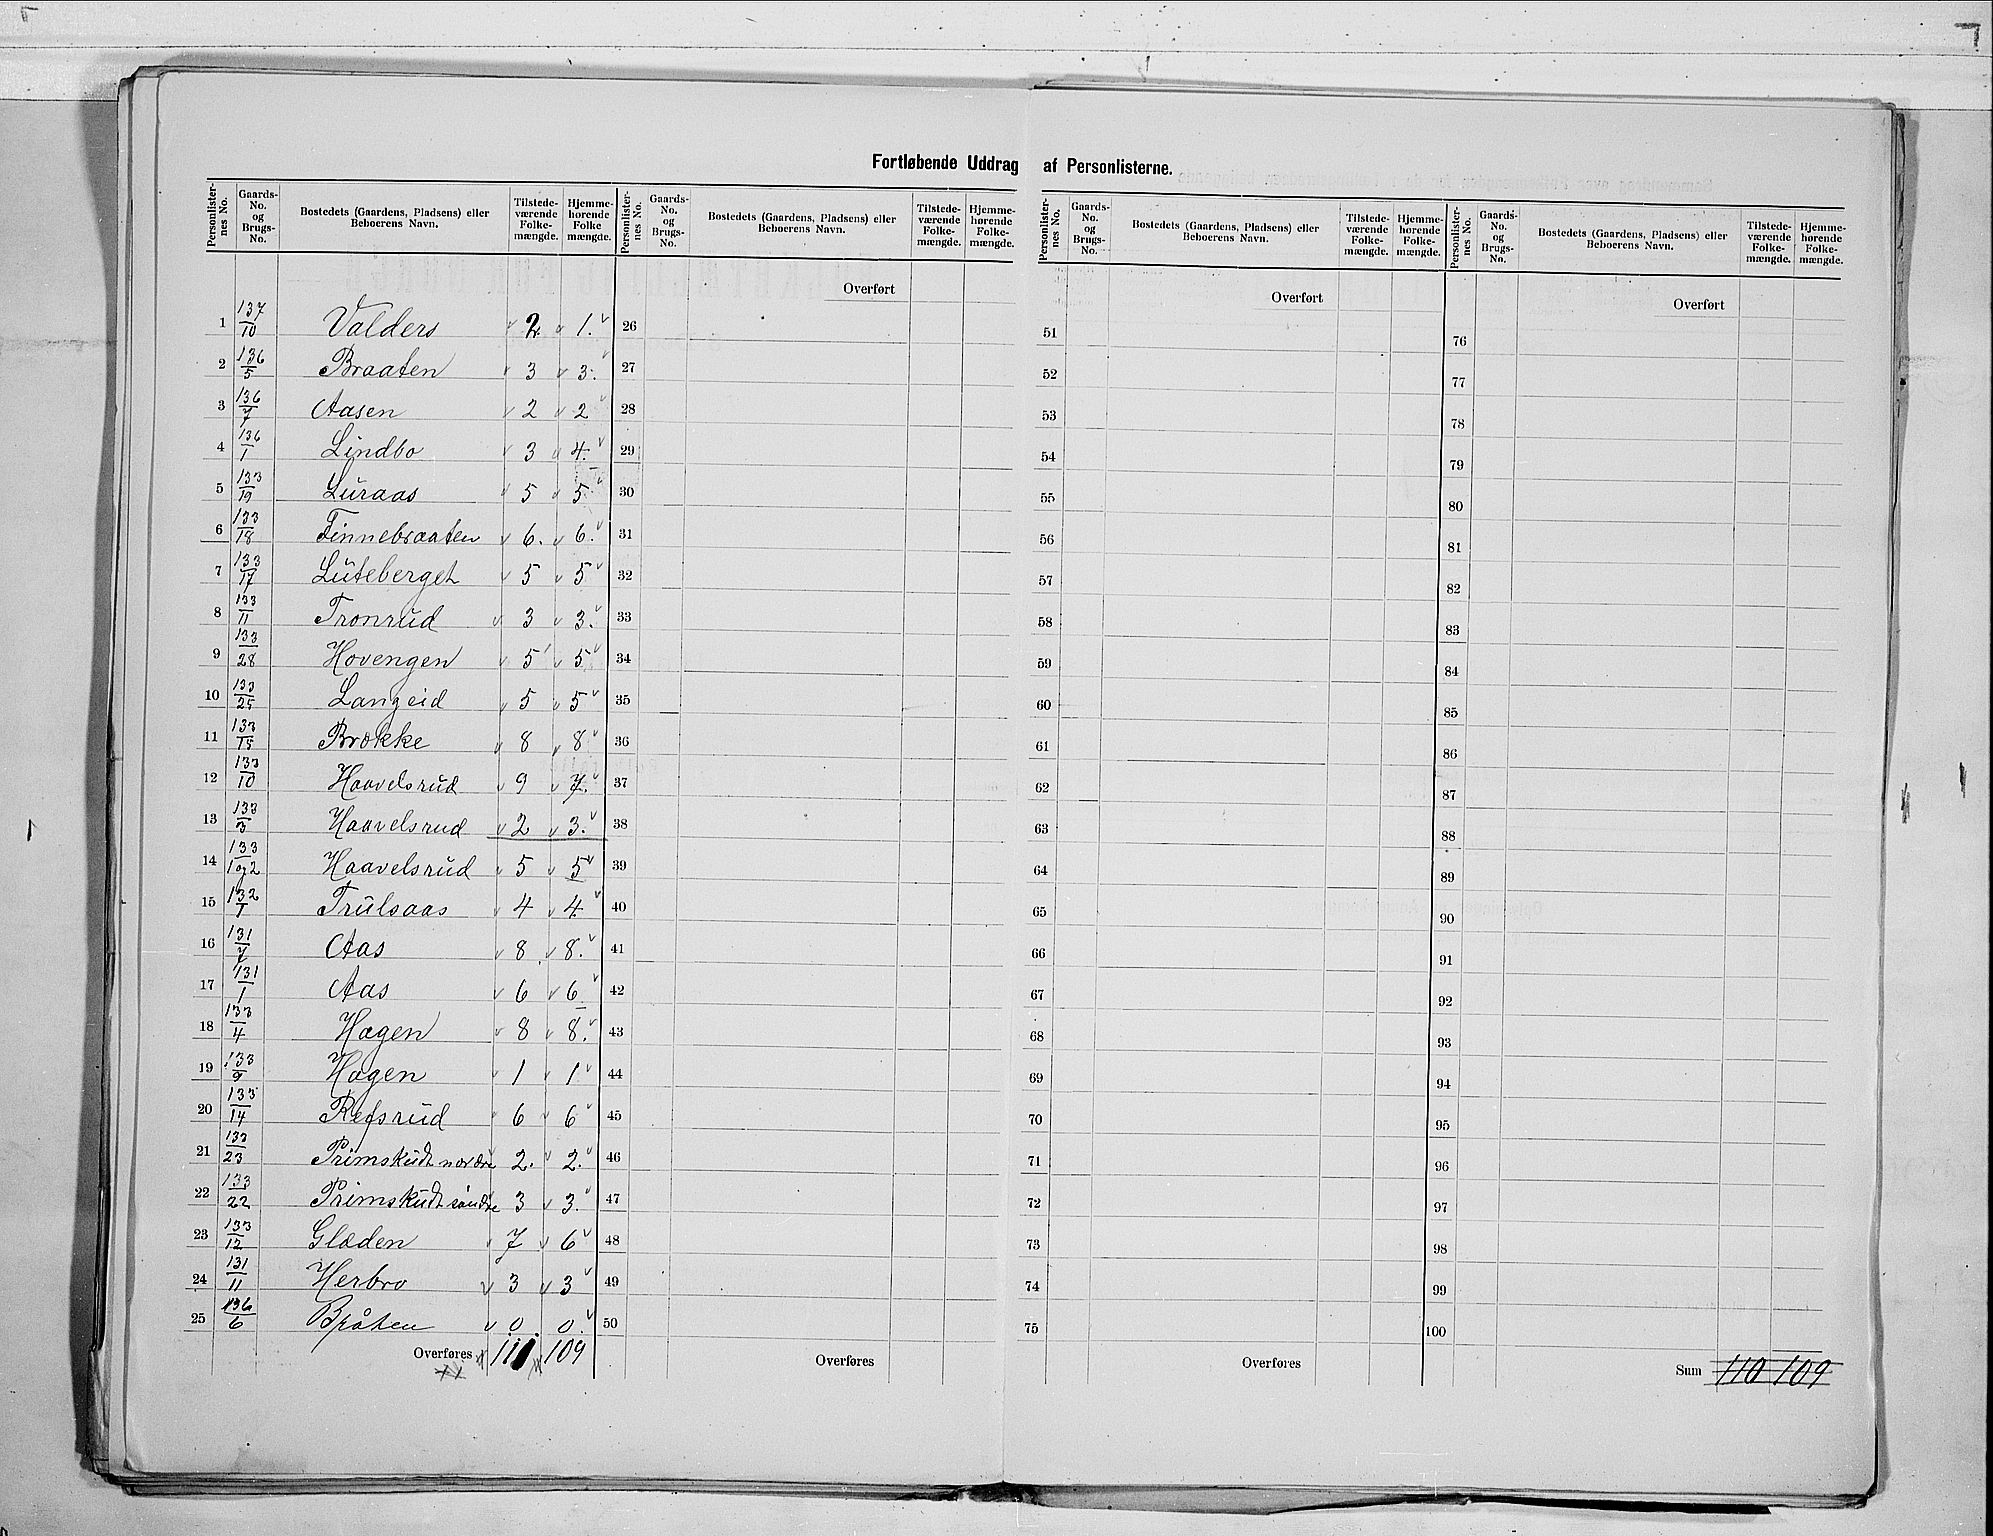 Fortløbende Uddrag af Personlisterne.
Personlisternes No. | Gaards-No. og Brugs-No. | Bostedets (Gaardens, Pladsens) eller Beboerens Navn. | Tilstedeværende Folkemængde. | Hjemmehørende Folkemængde.
1 137/10 Valders 2. 1.
2 136/5 Braaten 3 3.
3 136/7 Aasen 2 2
4 136/1 Lindbo 3 4.
5 133/19 Luraas 5 5
6 133/18 Finnebraaten 6. 6.
7 133/17 Luteberget 5 5
8 133/11 Tronrud 3 3.
9 133/28 Hovengen 5 5
10 133/25 Langeid 5 5
11 133/15 Brokke 8 8
12 133/10 Haavelsrud 9 7.
13 133/3 Haavelsrud 2 3.
14 133/1og2 Haavelsrud 5 5
15 132/1 Trulsaas 4 4
16 131/7 Aas 8 8.
17 131/1 Aas 6 6
18 133/4 Hagen 8 8.
19 133/9 Hagen 1 1
20 133/14 Refsrud 6 6
21 133/23 Primskudt nordre 2. 2.
22 133/22 Primskudt søndre 3 3.
23 133/12 Glæden 7 6
24 131/11 Herbro 3 3
25 136/6 Bråten 0 0.
Overføres 111 109
Personlisternes No. | Gaards-No. og Brugs-No. | Bostedets (Gaardens, Pladsens) eller Beboerens Navn. | Tilstedeværende Folkemængde. | Hjemmehørende Folkemængde.
Overført
26
27
28
29
30
31
32
33
34
35
36
37
38
39
40
41
42
43
44
45
46
47
48
49
50
Overføres
Personlisternes No. | Gaards-No. og Brugs-No. | Bostedets (Gaardens, Pladsens) eller Beboerens Navn. | Tilstedeværende Folkemængde. | Hjemmehørende Folkemængde.
Overført
51
52
53
54
55
56
57
58
59
60
61
62
63
64
65
66
67
68
69
70
71
72
73
74
75
Overføres
Personlisternes No. | Gaards-No. og Brugs-No. | Bostedets (Gaardens, Pladsens) eller Beboerens Navn. | Tilstedeværende Folkemængde. | Hjemmehørende Folkemængde.
Overført
76
77
78
79
80
81
82
83
84
85
86
87
88
89
90
91
92
93
94
95
96
97
98
99
100
Sum 110 109